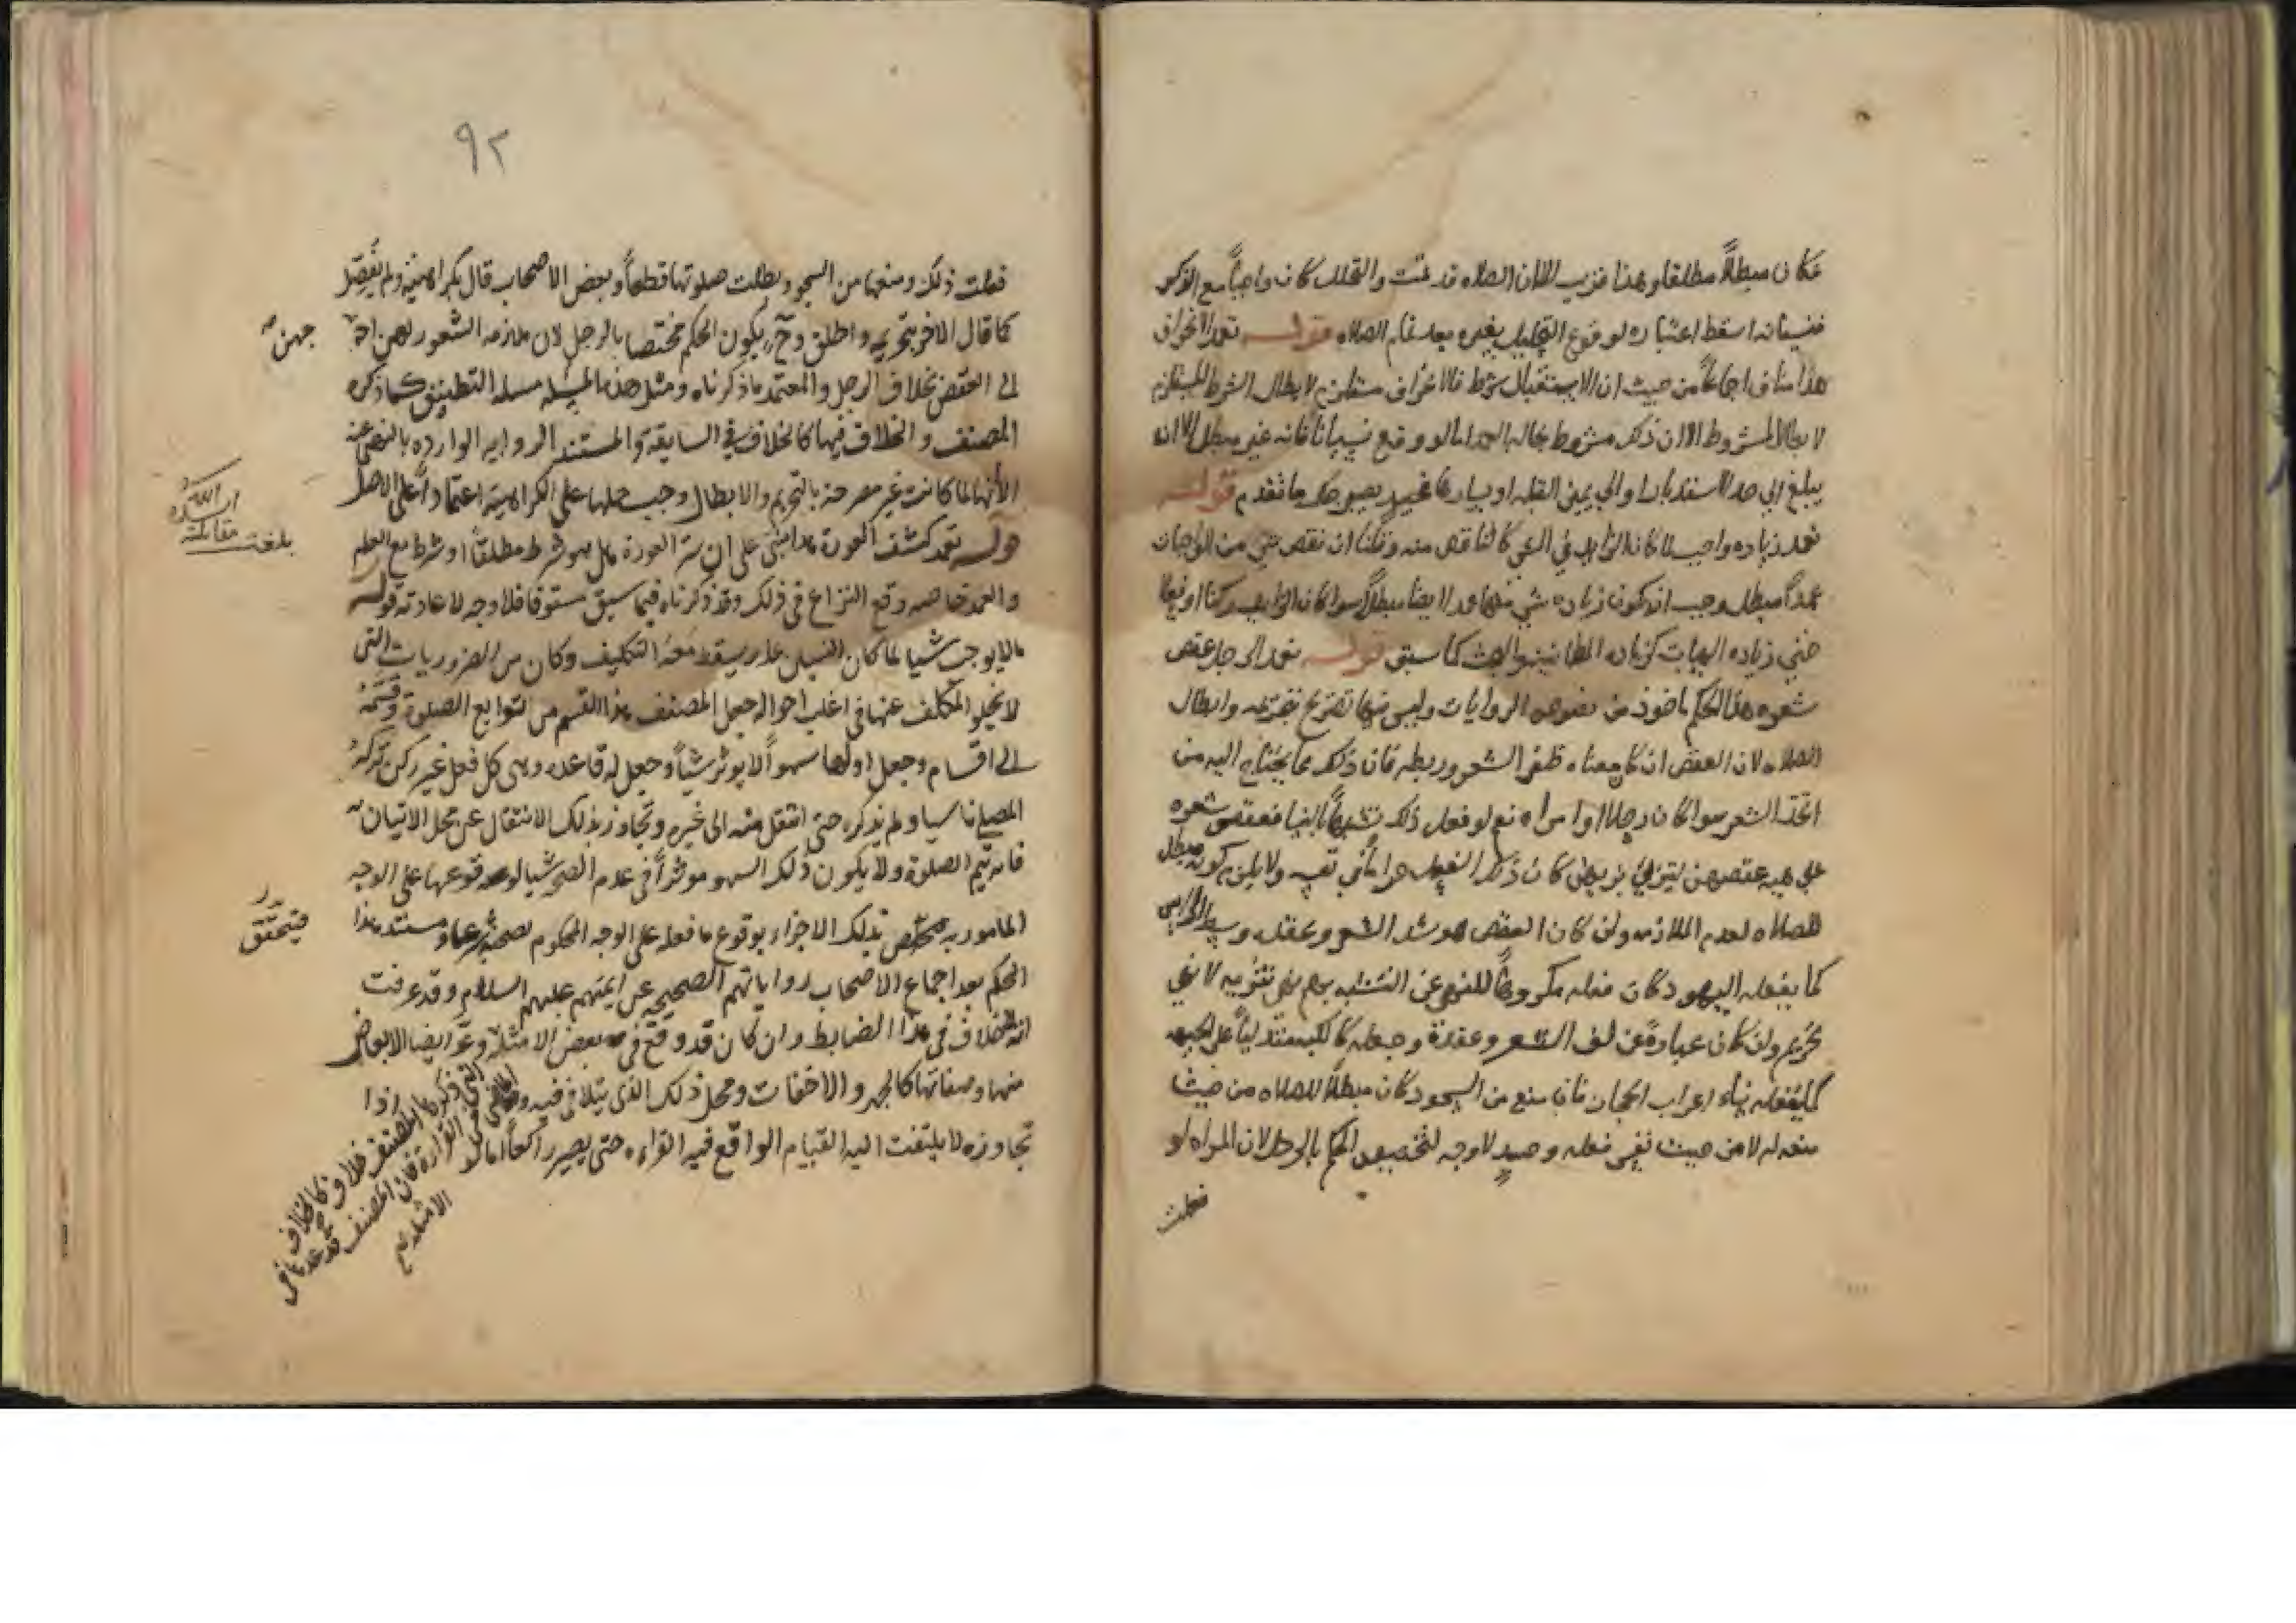 فكان مبطلاً مطلقا وهذا قريب لان الصلاه قد تمت والتحلل كان واجباً مع الذكر
فنسيانه اسقط اعتباره لوقوع التحليل بغيره بعد تمام الصلاه قوله تعمد الانحراف
هذا مناف اجماعاً من حيث ان الاستقبال شرط فالانحراف مستلزم لابطال الشرط المستلزم
لابطال المشروط الا ان ذلك مشروط بحاله العمد اما لو وقع نسياناً فانه غير مبطل الا انه
يبلغ الى حد الاستدبار او الى يمين القبله او يسارها فحينئذ يصير حكمه ما تقدم قوله
تعمد زياده واجب لما كان الزايد في الشي كالناقص منه وقلنا ان نقص شي من الواجبات
عمداً مبطل وجب ان يكون زياده شي منها عمدا ايضا مبطلاً سوا كان الزايد ركنا او فعلا
حتى زياده الهيات كزياده الطمانينه والبحث كما سبق قوله تعمد الرجل عقص
شعره هذا الحكم ماخوذ من نصوص الروايات وليس فيها تصريح بتحريمه وابطال
الصلاه لان العقص ان كان معناه ظفر الشعر وربطه فان ذلك مما يحتاج اليه من
اتخذ الشعر سوا كان رجلا او امراه نعم لو فعل ذلك تشبهاً بالنسا فعقص شعره
على هيه عقصهن ليتزيا بزيهن كان ذلك الفعل حراماً في نفسه ولا يلزم كونه مبطل
للصلاه لعدم الملازمه وان كان العقص هو شد الشعر وعقله وسط الراس
كما يفعله اليهود كان فعله مكروهاً للنهي عن التشبه بهم نهي تنزيه لا نهي
تحريم وان كان عبارة عن لف الشعر وعقده وجعله كالكبه متدلياً على الجبهه
كما يفعله نساء اعراب الحجاز فان منع من السجود كان مبطلاً للصلاه من حيث
منعه له لا من حيث نفس فعله وحينئذ لا وجه لتخصيص الحكم بالرجل لان المراه لو
فعلت
٩٢
فعلت ذلك ومنعها من السجود بطلت صلوتها قطعاً وبعض الاصحاب قال بكراهيته ولم يفصل
كما قال الاخر بتحريمه واطلق وح يكون الحكم مختصا بالرجل لان ملازمه الشعور لهن احـ
جهن
الى العقص بخلاف الرجل والمعتمد ما ذكرناه ومثل هذه المسله مسله التطبيق كما ذكره
المصنف والخلاف فيها كالخلاف في السابقة والمستند الروايه الوارده بالنهي عنه
الا انها لما كانت غير مصرحة بالتحريم والابطال وجب حملها على الكراهية اعتماداً على الاصل
بلغت مقابلة ايده الله
قوله تعمد كشف العورة هذا مبني على ان ستر العورة هل هو شرط مطلقا او شرط مع العلم
والعمد خاصه وقع النزاع في ذلك وقد ذكرناه فيما سبق مستوفا فلا وجه لاعادته قوله
ما لا يوجب شيا لما كان النسيان عذر يسقط معه التكليف وكان من الضروريات التي
لا يخلو المكلف عنها في اغلب احواله جعل المصنف هذا القسم من توابع الصلوة وقسمه
الى اقسام وجعل اولها سهواً لا يوثر شيأً وجعل له قاعده وهي كل فعل غير ركن تركه
المصلي ناسيا ولم يذكره حتى انتقل منه الى غيره وتجاوز بذلك الانتقال عن محل الاتيان
فانه يتم الصلوة ولا يكون ذلك السهو موثراً في عدم الصحه شيا لوقوعها على الوجه
المامور به بذلك الاجزاء بوقوع ما فعله على الوجه المحكوم بصحته شرعا ومستند هذا
فيتحقق
الحكم بعد اجماع الاصحاب رواياتهم الصحيحه عن ايمتهم عليهم السلام وقد عرفت
انه لا خلاف في هذا الضابط وان كان قد وقع في بعض الامثلة وعد ايضا الابعاض
منها وصفاتها كالجهر والاخفات ومحل ذلك الذي يتلافى فيه اذا
تجاوزه لا يلتفت اليه القيام الواقع فيه القراءه حتى يصير راكعاً اما لو
التي ذكرها المصنف خلاف كالخلاف
في القراءة فان المصنف قد عد
الامثله